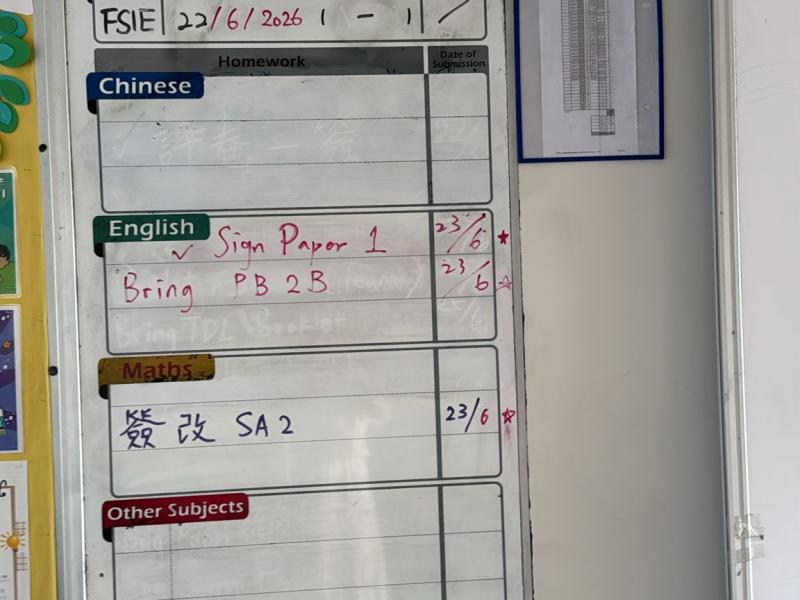 FSIE 22/6/2026 1 - 1 /
Homework Date of Submission
Chinese
評卷一簽
English
✓ Sign Paper 1 23/6 ★
Bring PB 2B 23/6 ☆
Bring TDL \Booklet
Maths
簽改 SA2 23/6 ☆
Other Subjects